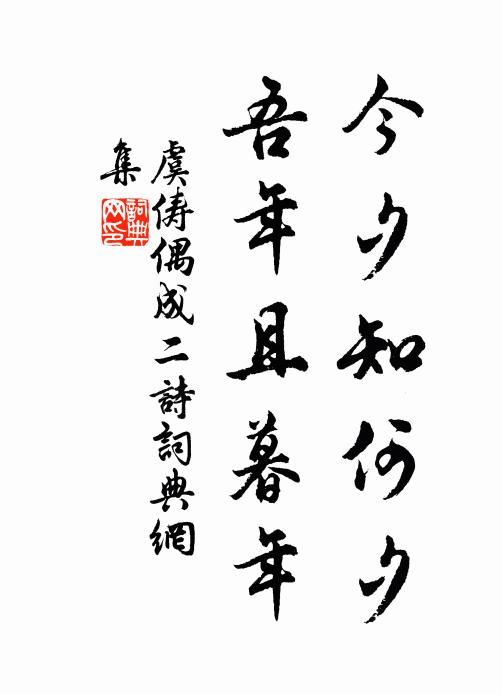 今夕知何夕
吾年且暮年
虞俦偶成二詩詞典網
集
詞典
网印